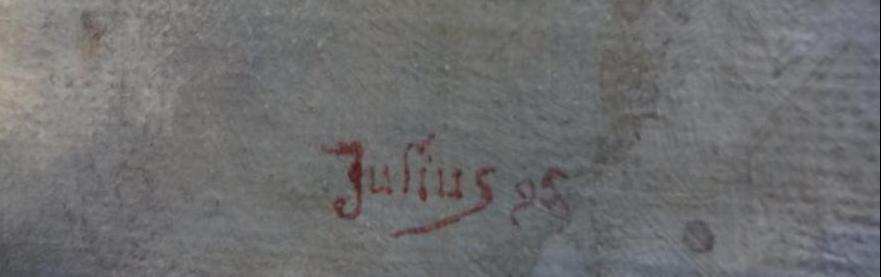 Julius 95